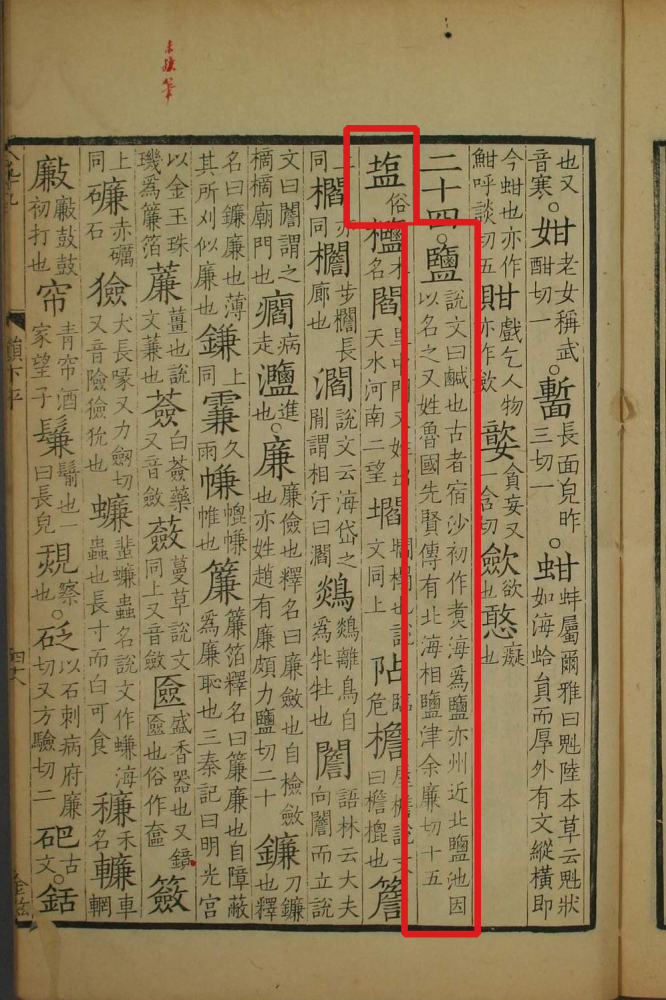 也又音寒。姏老女稱武酣切一。長面皃昨三切一。蚶蚌屬爾雅曰魁陸本草云魁狀如海蛤員而厚外有文縱橫即
今蚶也亦作魽呼談切五 戲乞人物 亦作歛 貪妄又一含切 歛欲也憨癡也
二十四。鹽說文曰鹹也古者宿沙初作煑海爲鹽亦州近北鹽池因以名之又姓魯國先賢傳有北海相鹽津余廉切十五
塩俗 木名閻里中門又姓出天水河南二望壛 說文同上阽臨危檐屋檐說文曰檐梍也簷
上同櫩 同 步櫩長廊也 說文云海岱之閒謂相汙曰 鷂離鳥自爲牝牡也 語林云大夫向 而立說
文曰 謂之樀樀廟門也 病走灩進也。廉廉儉也釋名曰廉斂也自檢斂也亦姓趙有廉頗力鹽切二十鐮刀鐮也釋
名曰鐮廉也薄其所刈似廉也鎌上同 久雨 帷也簾簾箔釋名曰簾廉也自障蔽爲廉恥也三秦記曰明光宮
以金玉珠璣爲簾箔薕薑也說文蒹也薟白薟藥又音斂蘞蔓草說文同上又音斂匳盛香器也又鏡匳也俗作奩籢
上同 赤礪石獫犬長喙又力劒切又音險獫狁也蠊蜚蠊蟲名說文作螊海蟲也長寸而白可食 禾名 車輞
鼓鼓初打也帘青帘酒家望子鬑鬢也一曰長皃覝察也。砭以石刺病府廉切又方驗切二 古文。銛